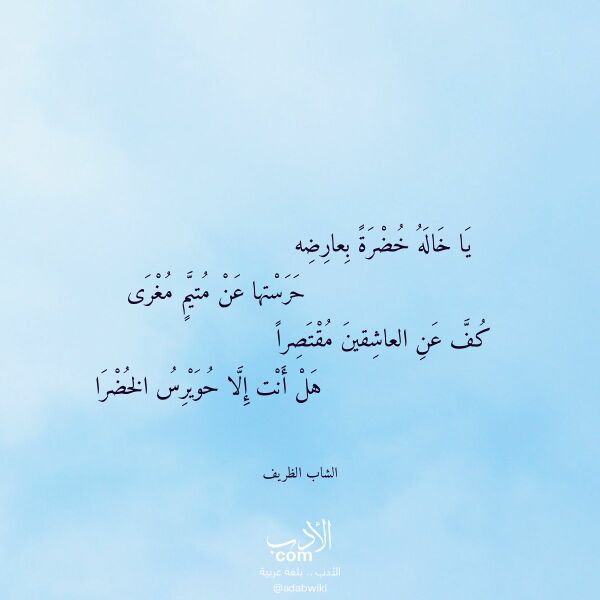 يَا خَالَهُ خُضْرَةً بِعارِضِه
حَرَسْتها عَنْ مُتيَّمٍ مُغْرَى
كُفَّ عَنِ العاشِقينَ مُقْتَصِراً
هَلْ أَنْت إِلَّا حُوَيْرِسُ الخُضْرَا
الشاب الظريف
الأدب
com
الأدب .. بلغة عربية
@adabwiki